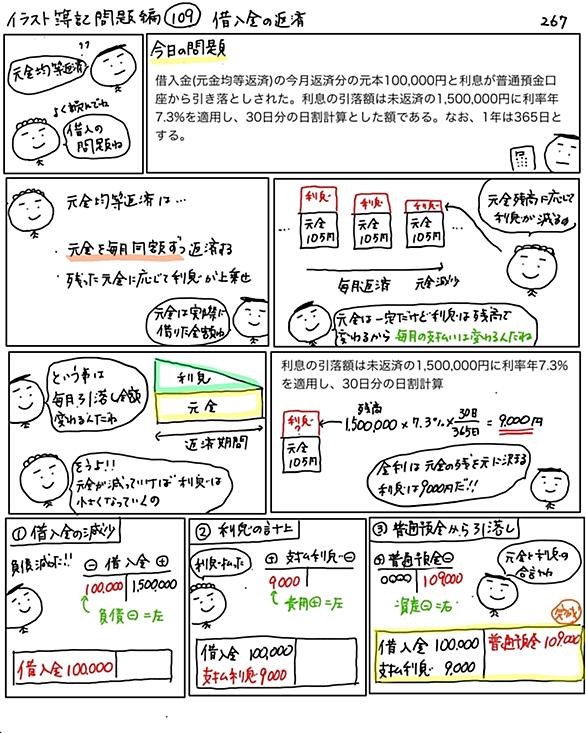 イラスト簿記問題編 109 借入金の返済 267
??
元金均等返済
よく読んでね
借入の
問題ね
今日の問題
借入金(元金均等返済)の今月返済分の元本100,000円と利息が普通預金口
座から引き落としされた。利息の引落額は未返済の1,500,000円に利率年
7.3%を適用し、30日分の日割計算とした額である。なお、1年は365日と
する。
元金均等返済は…
・元金を毎月同額ずつ返済する
・残った元金に応じて利息が上乗せ
元金は実際に
借りた金額ね
利息 利息 利息
元金 元金 元金
10万円 10万円 10万円
毎月返済 元金減少
元金残高に応じて
利息が減るの
元金は一定だけど利息は残高で
変わるから毎月の支払いは変わるんだね
という事は
毎月引落し金額
変わるんだね
利息
元金
返済期間
そうよ!!
元金が減っていけば利息は
小さくなっていくの
利息の引落額は未返済の1,500,000円に利率年7.3%
を適用し、30日分の日割計算
利息
?
元金
10万円
残高
1,500,000 × 7.3% × 30日/365日 = 9,000円
金利は元金の残を元に決まる
利息は9000円だ!!
① 借入金の減少
負債減った!!
⊖ 借入金 ⊕
100,000 1,500,000
負債⊖=左
借入金 100,000
② 利息の計上
利息払った
⊕ 支払利息 ⊖
9000
費用⊕=左
借入金 100,000
支払利息 9000
③ 普通預金から引落し
⊕ 普通預金 ⊖
0000 109000
資産⊖=右
元金と利息の
合計ね
完成
借入金 100,000 普通預金 109,000
支払利息 9,000